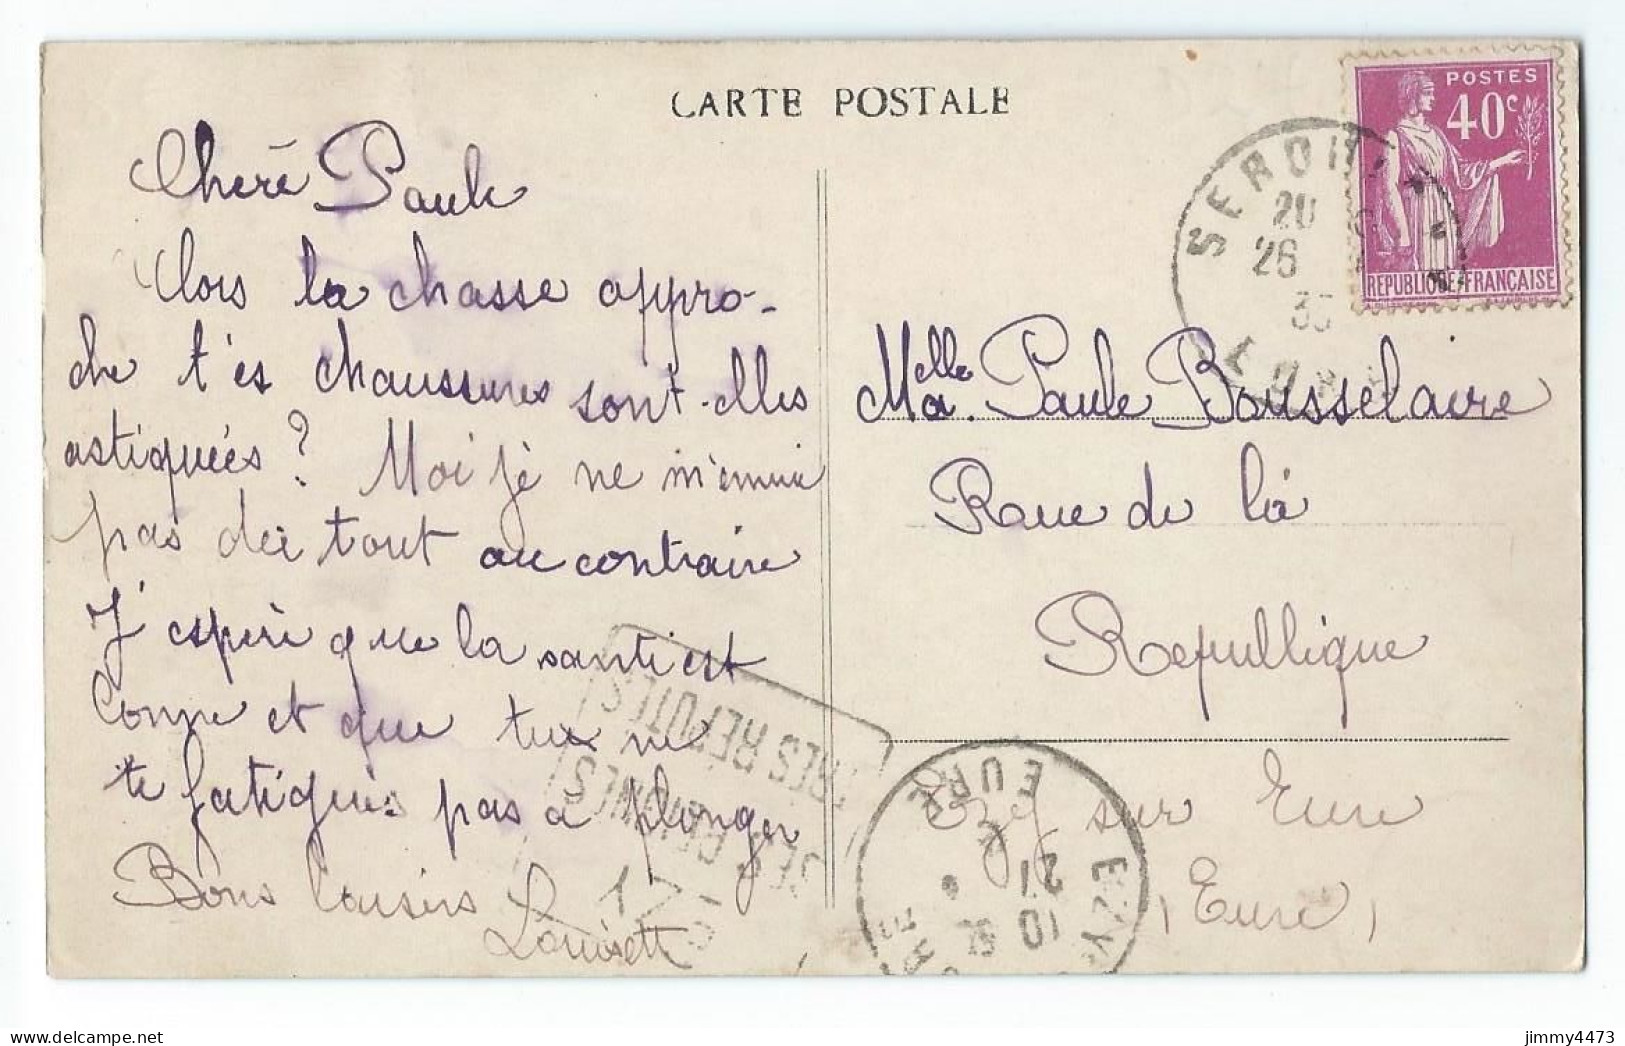 CARTE POSTALE
POSTES
40c
REPUBLIQUE FRANÇAISE
20
26
35
Chère Paule
Alors la chasse appro-
che t'es chaussures sont-elles
astiquées ? Moi je ne m'ennuie
pas du tout au contraire
J'espère que la santé est
bonne et que tu ne
te fatigues pas a plonger
Bons baisers
Louisette
Melle Paule Bousselaire
Rue de la
Republique
Ezy sur Eure
(Eure)
EZY
EURE
10
21
jimmy4473